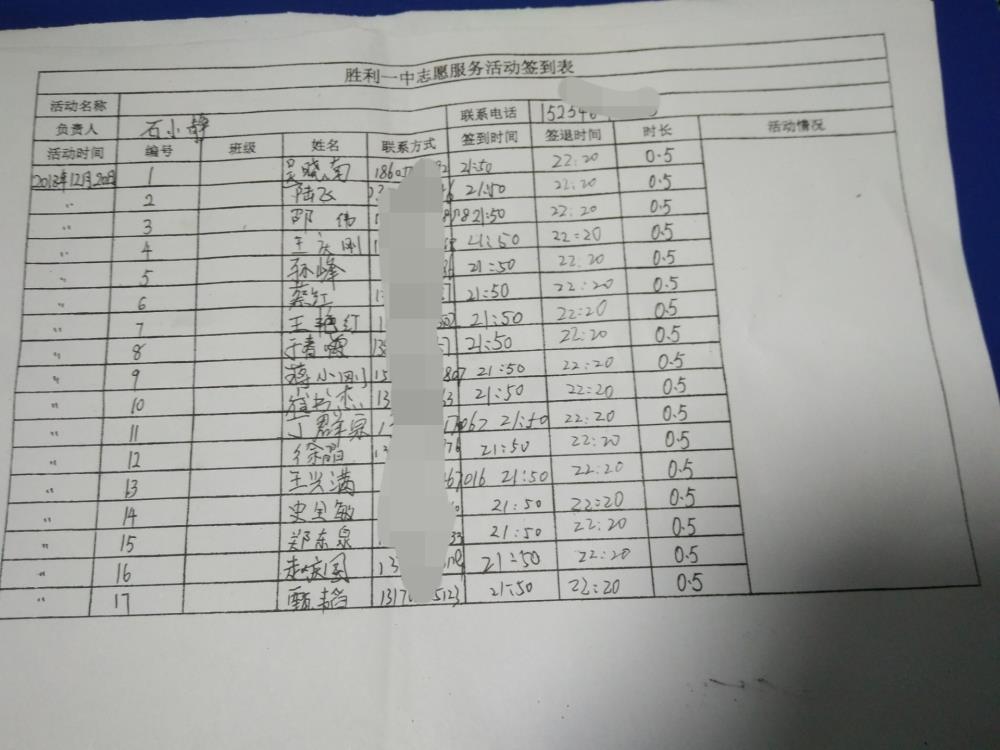 胜利一中志愿服务活动签到表
活动名称 联系电话 15254
负责人 石小静 签到时间 签退时间 时长 活动情况
活动时间 编号 班级 姓名 联系方式
2018年12月20日 1 吴晓南 1860 92 21:50 22:20 0.5
〃 2 陆飞 21:50 22:20 0.5
〃 3 邵伟 21:50 22:20 0.5
〃 4 王庆刚 21:50 22:20 0.5
〃 5 孙峰 21:50 22:20 0.5
〃 6 蔡红 21:50 22:20 0.5
〃 7 王艳红 21:50 22:20 0.5
〃 8 于春 21:50 22:20 0.5
〃 9 蒋小刚 15 807 21:50 22:20 0.5
〃 10 13 63 21:50 22:20 0.5
〃 11 丁群泉 067 21:50 22:20 0.5
〃 12 徐晶 13 76 21:50 22:20 0.5
〃 13 王兴满 67016 21:50 22:20 0.5
〃 14 史贝敏 21:50 22:20 0.5
〃 15 郑东泉 33 21:50 22:20 0.5
〃 16 13 21:50 22:20 0.5
〃 17 甄韬 1317 5123 21:50 22:20 0.5